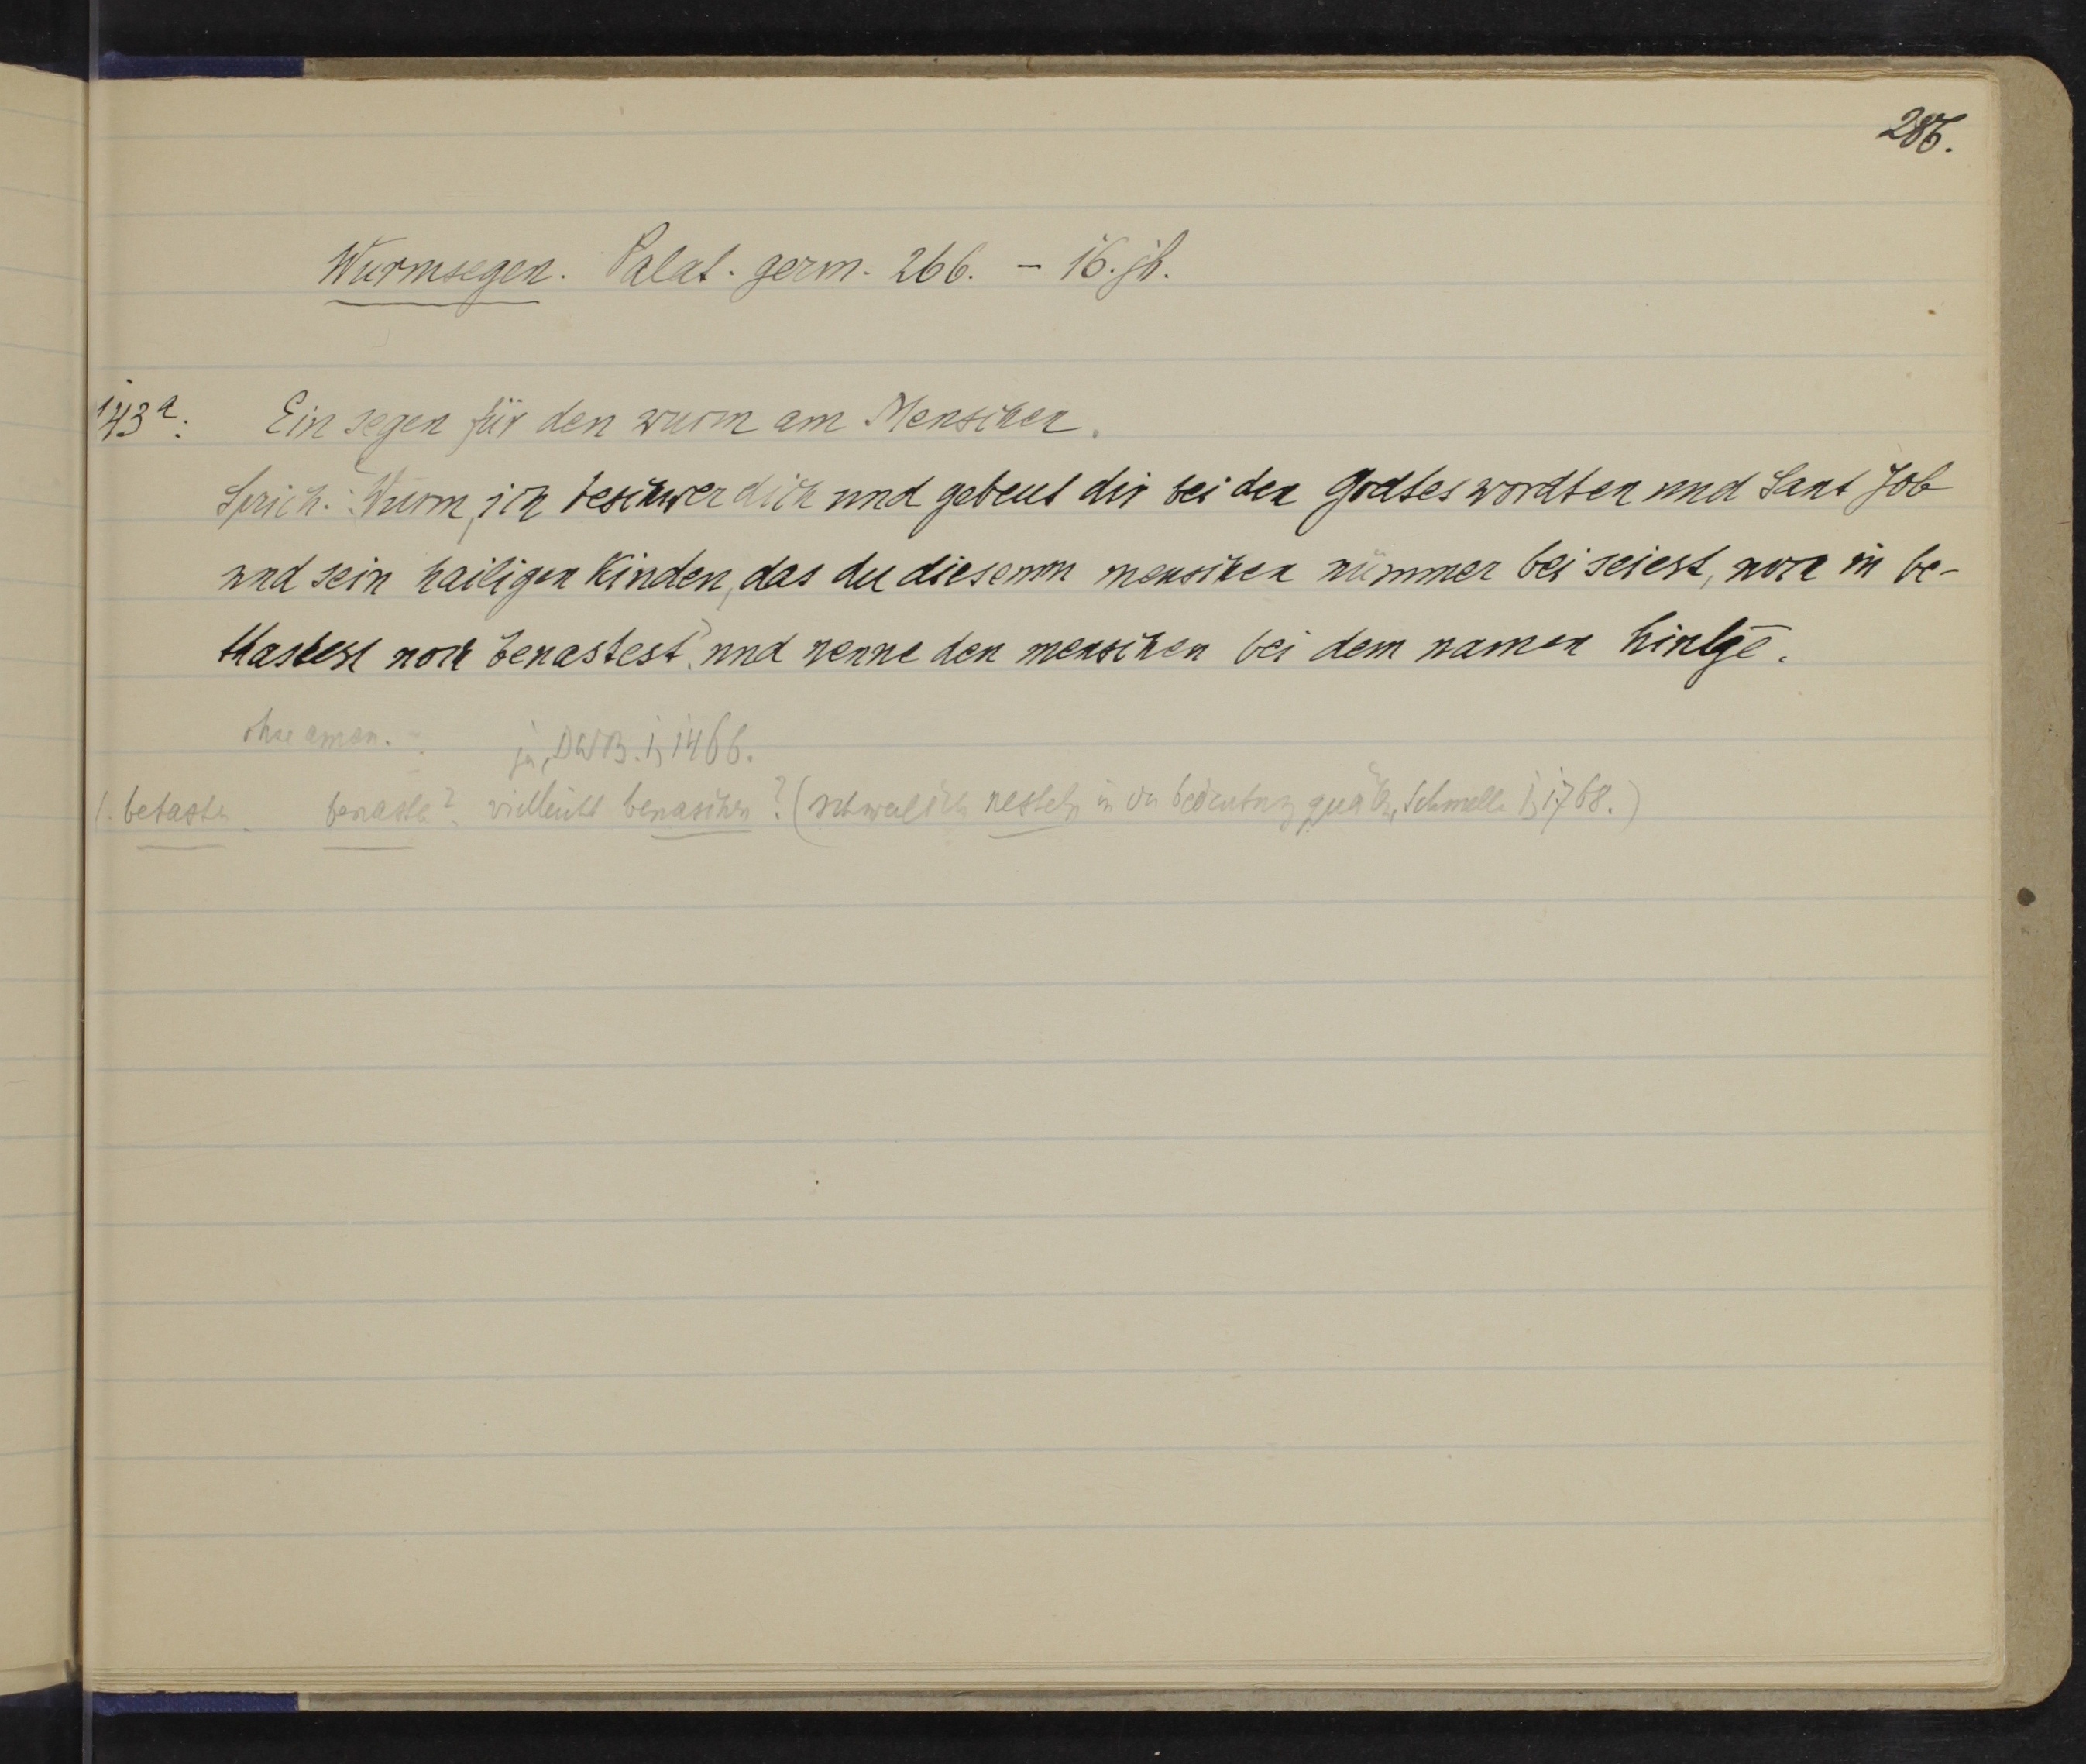 286.
Wurmsegen. Palat. germ. 266. – 16. jh.
143a. Ein segen für den wurm am Menschen.
Sprich: Wurm, ich beschwer dich und gebeut dir bei den Godtes wordten und Sant Job
und sein hailigen Kinden, das du diesemm menschen nümmer bei seiest, noch in be-
thastest noch benastest und nenne den menschen bei dem namen
ohne amen. – ja, DWB. 1, 1466.
1. betasten benaste? vielleicht benaschen? (schwerlich nesteln in der bedeutung quälen, Schmeller 1, 1768.)